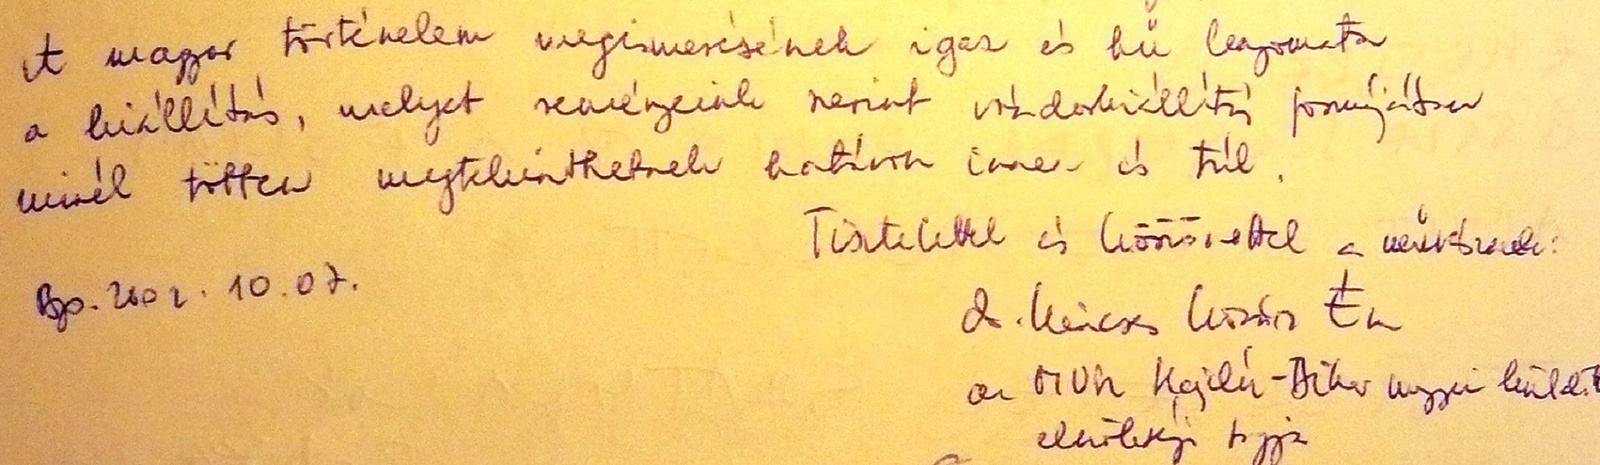 A magyar történelem megismerésének igaz és hű lenyomata
a kiállítás, melyet reményeink szerint vándorkiállítás formájában
minél többen megtekinthetnek határon innen és túl.
Tisztelettel és köszönettel a művésznek:
Bp. 2002. 10. 07.
dr. Kincses
az Hajdú-Bihar megyei küldött
elnökségi tagja